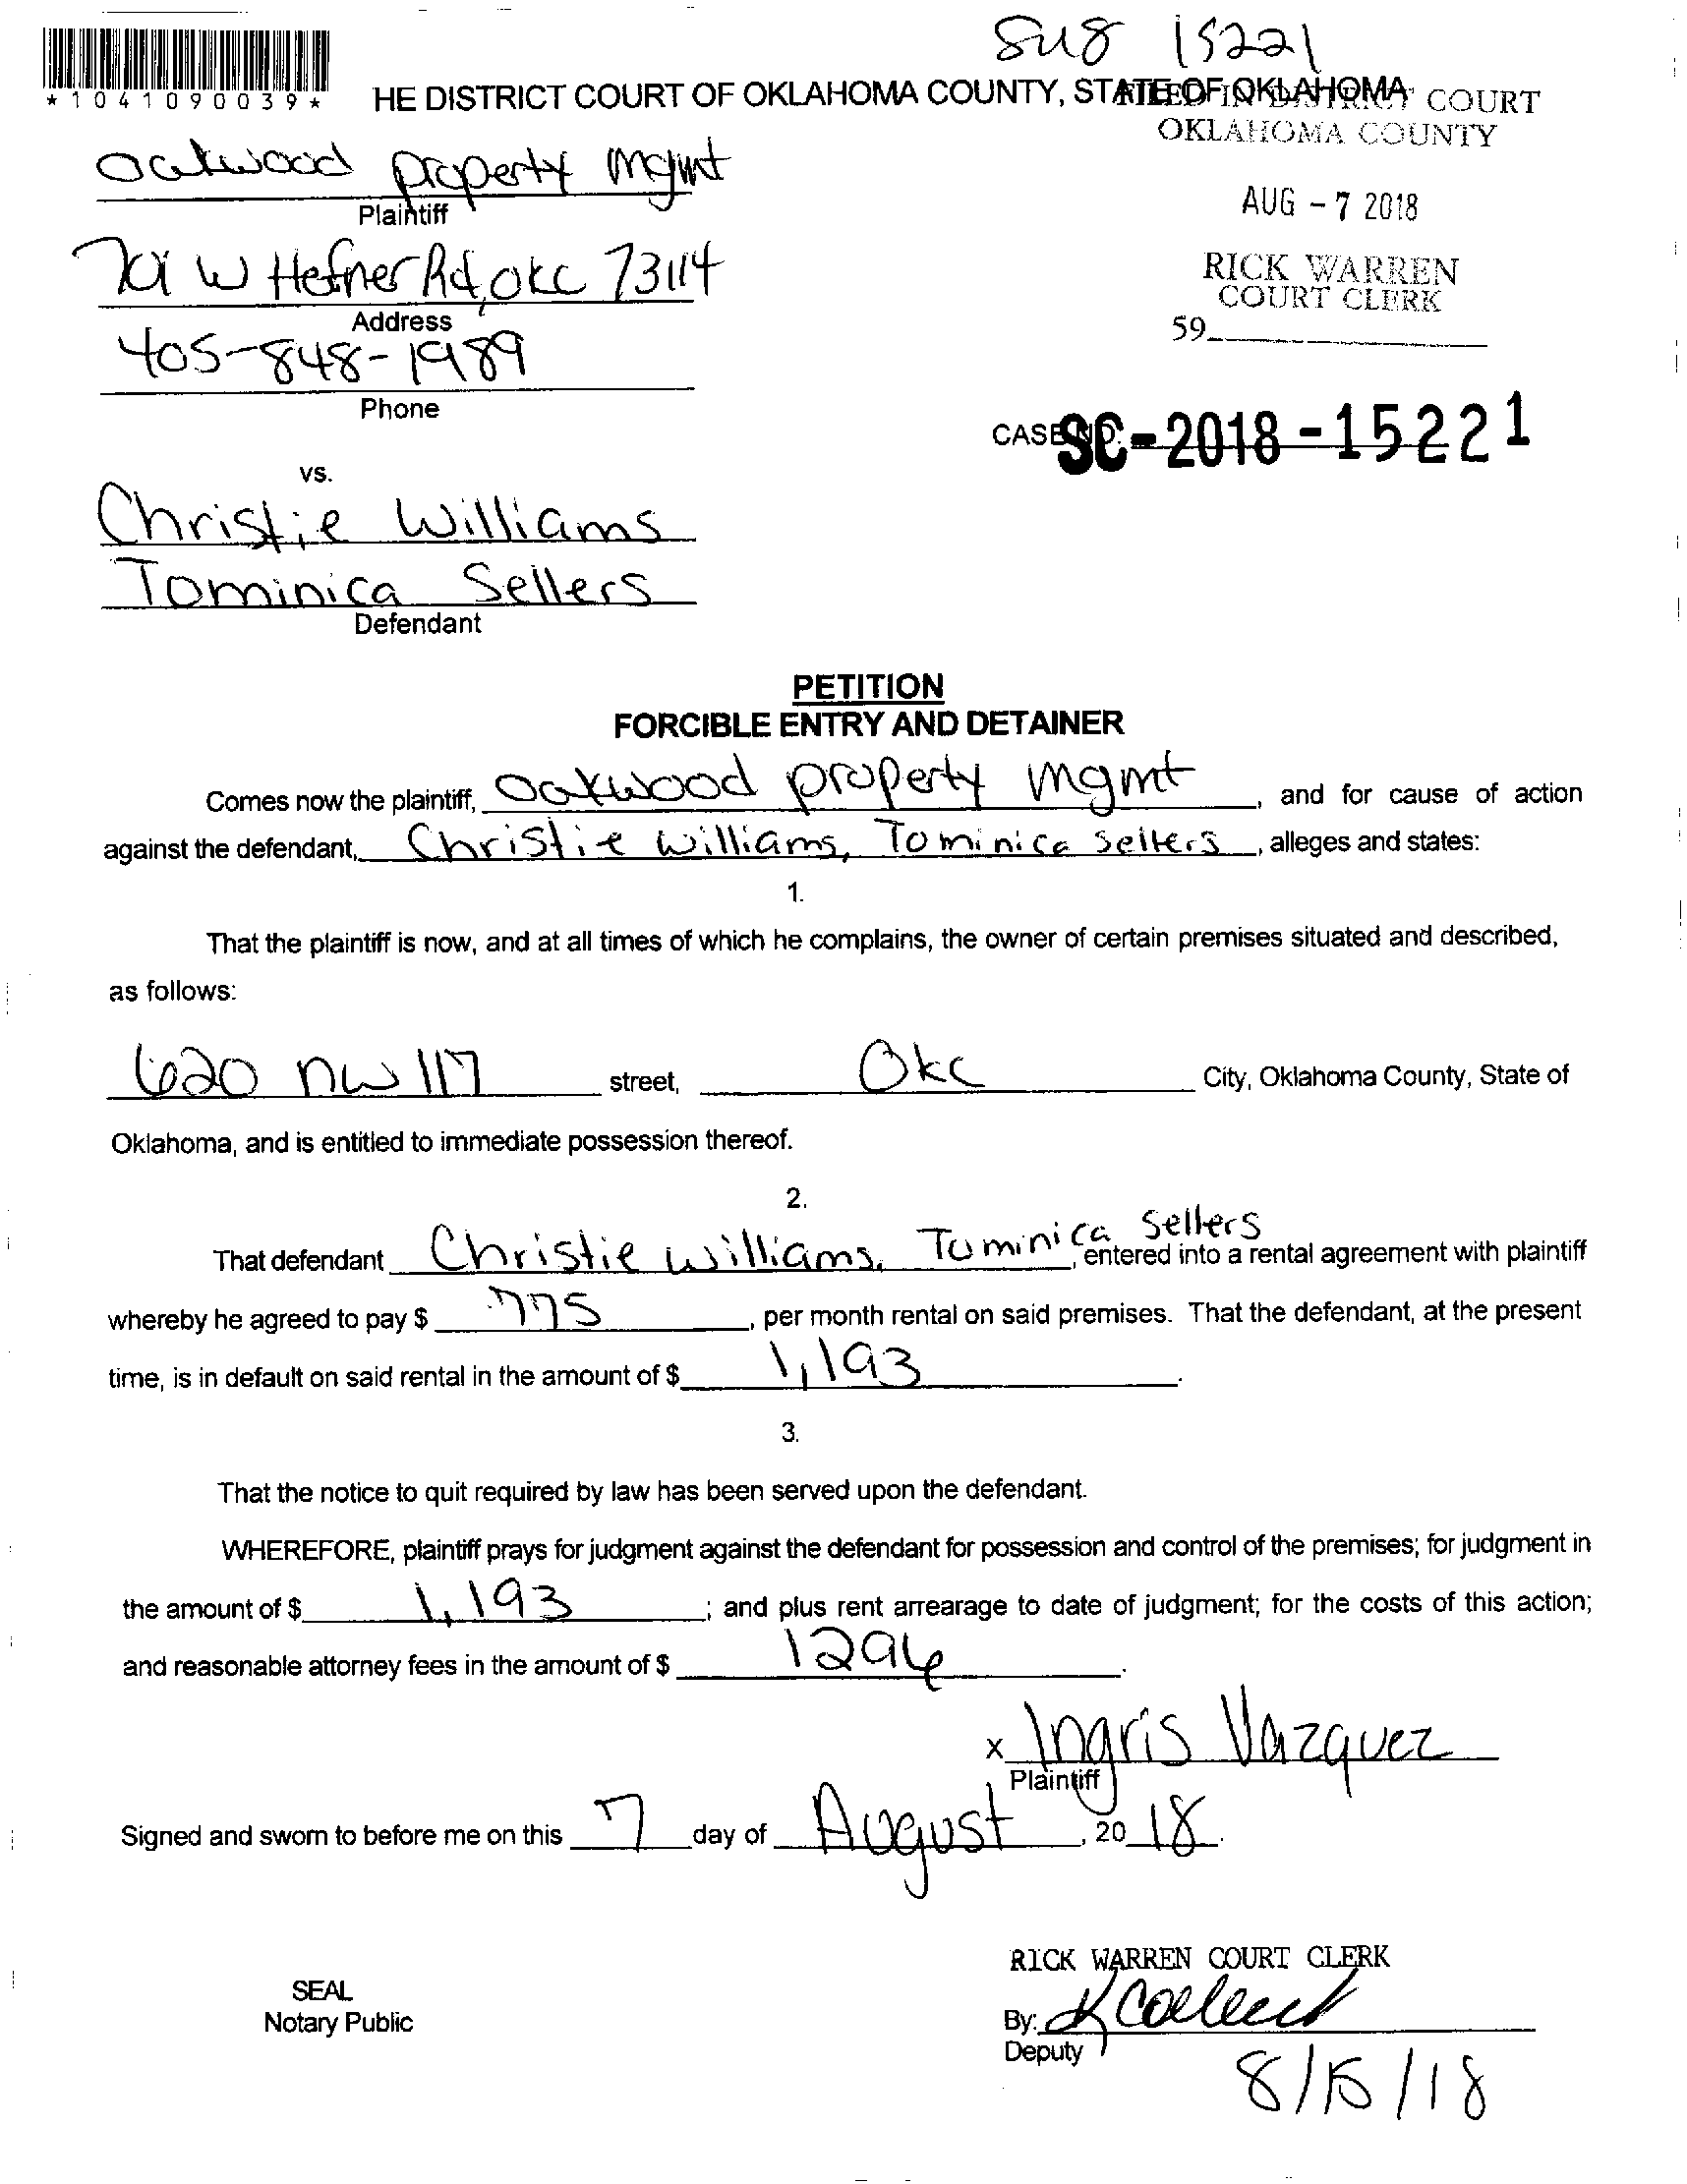 15221
*1041090039*
HE DISTRICT COURT OF OKLAHOMA COUNTY, STATE OF OKLAHOMA
FILED IN DISTRICT COURT
OKLAHOMA COUNTY
Oakwood property mgmt
Plaintiff
AUG - 7 2018
701 W Hefner Rd, OKC 73114
Address
RICK WARREN
COURT CLERK
59
405-848-1989
Phone
CASE NO. SC-2018-15221
vs.
Christie Williams
Tominica Sellers
Defendant
PETITION
FORCIBLE ENTRY AND DETAINER
Comes now the plaintiff, Oakwood property mgmt, and for cause of action
against the defendant, Christie Williams, Tominica Sellers, alleges and states:
1.
That the plaintiff is now, and at all times of which he complains, the owner of certain premises situated and described,
as follows:
620 NW 117 street, Okc City, Oklahoma County, State of
Oklahoma, and is entitled to immediate possession thereof.
2.
That defendant Christie Williams, Tominica Sellers, entered into a rental agreement with plaintiff
whereby he agreed to pay $ 775, per month rental on said premises. That the defendant, at the present
time, is in default on said rental in the amount of $ 1,193.
3.
That the notice to quit required by law has been served upon the defendant.
WHEREFORE, plaintiff prays for judgment against the defendant for possession and control of the premises; for judgment in
the amount of $ 1,193; and plus rent arrearage to date of judgment; for the costs of this action;
and reasonable attorney fees in the amount of $ 1296.
x Ingris Vazquez
Plaintiff
Signed and sworn to before me on this 7 day of August, 20 18.
RICK WARREN COURT CLERK
SEAL
Notary Public
By:
Deputy
8/15/18